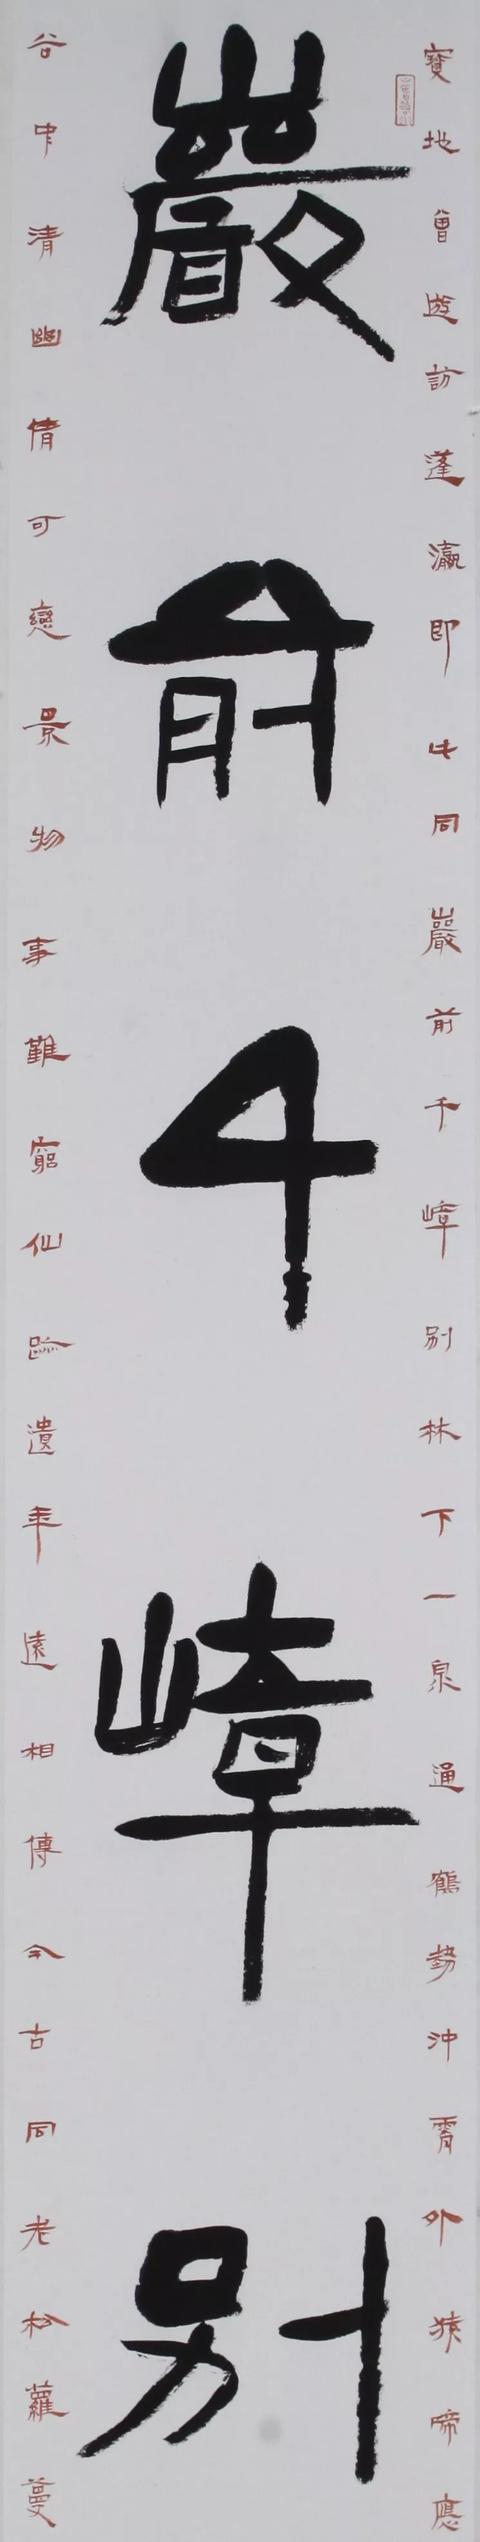 寶地曾遊訪蓬瀛即此同巖前千嶂別林下一泉通鶴勢沖霄外猿啼應
巖前千嶂別
谷中清幽情可戀景物事難窮仙跡遺年遠相傳今古同老松蘿蔓